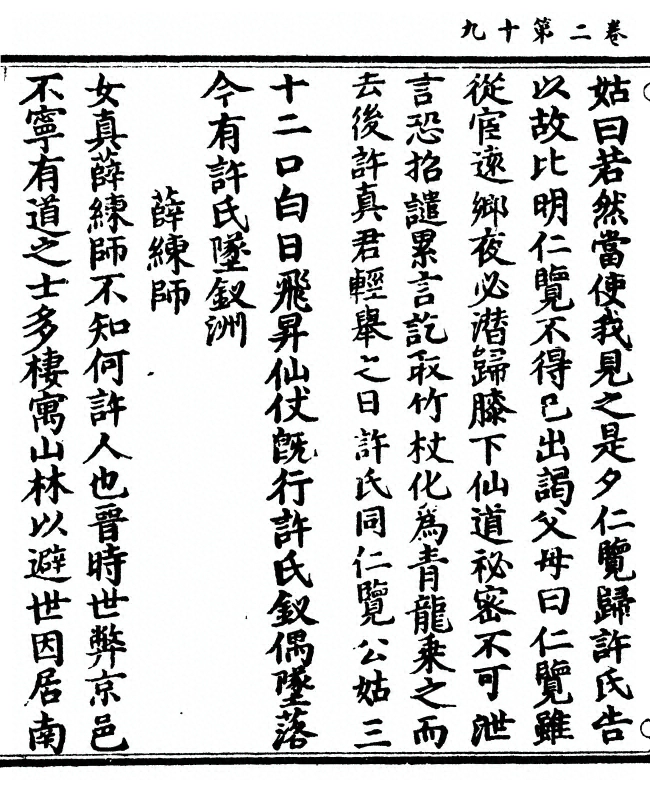 卷二第十九
姑曰若然當使我見之是夕仁覽歸許氏告
以故比明仁覽不得已出謁父母曰仁覽雖
從宦遠鄉夜必潛歸膝下仙道祕密不可泄
言恐招譴累言訖取竹杖化為青龍乘之而
去後許真君輕舉之日許氏同仁覽公姑三
十二口白日飛昇仙仗旣行許氏釵偶墜落
今有許氏墜釵洲
薛練師
女真薛練師不知何許人也晉時世弊京邑
不寧有道之士多棲寓山林以避世因居南